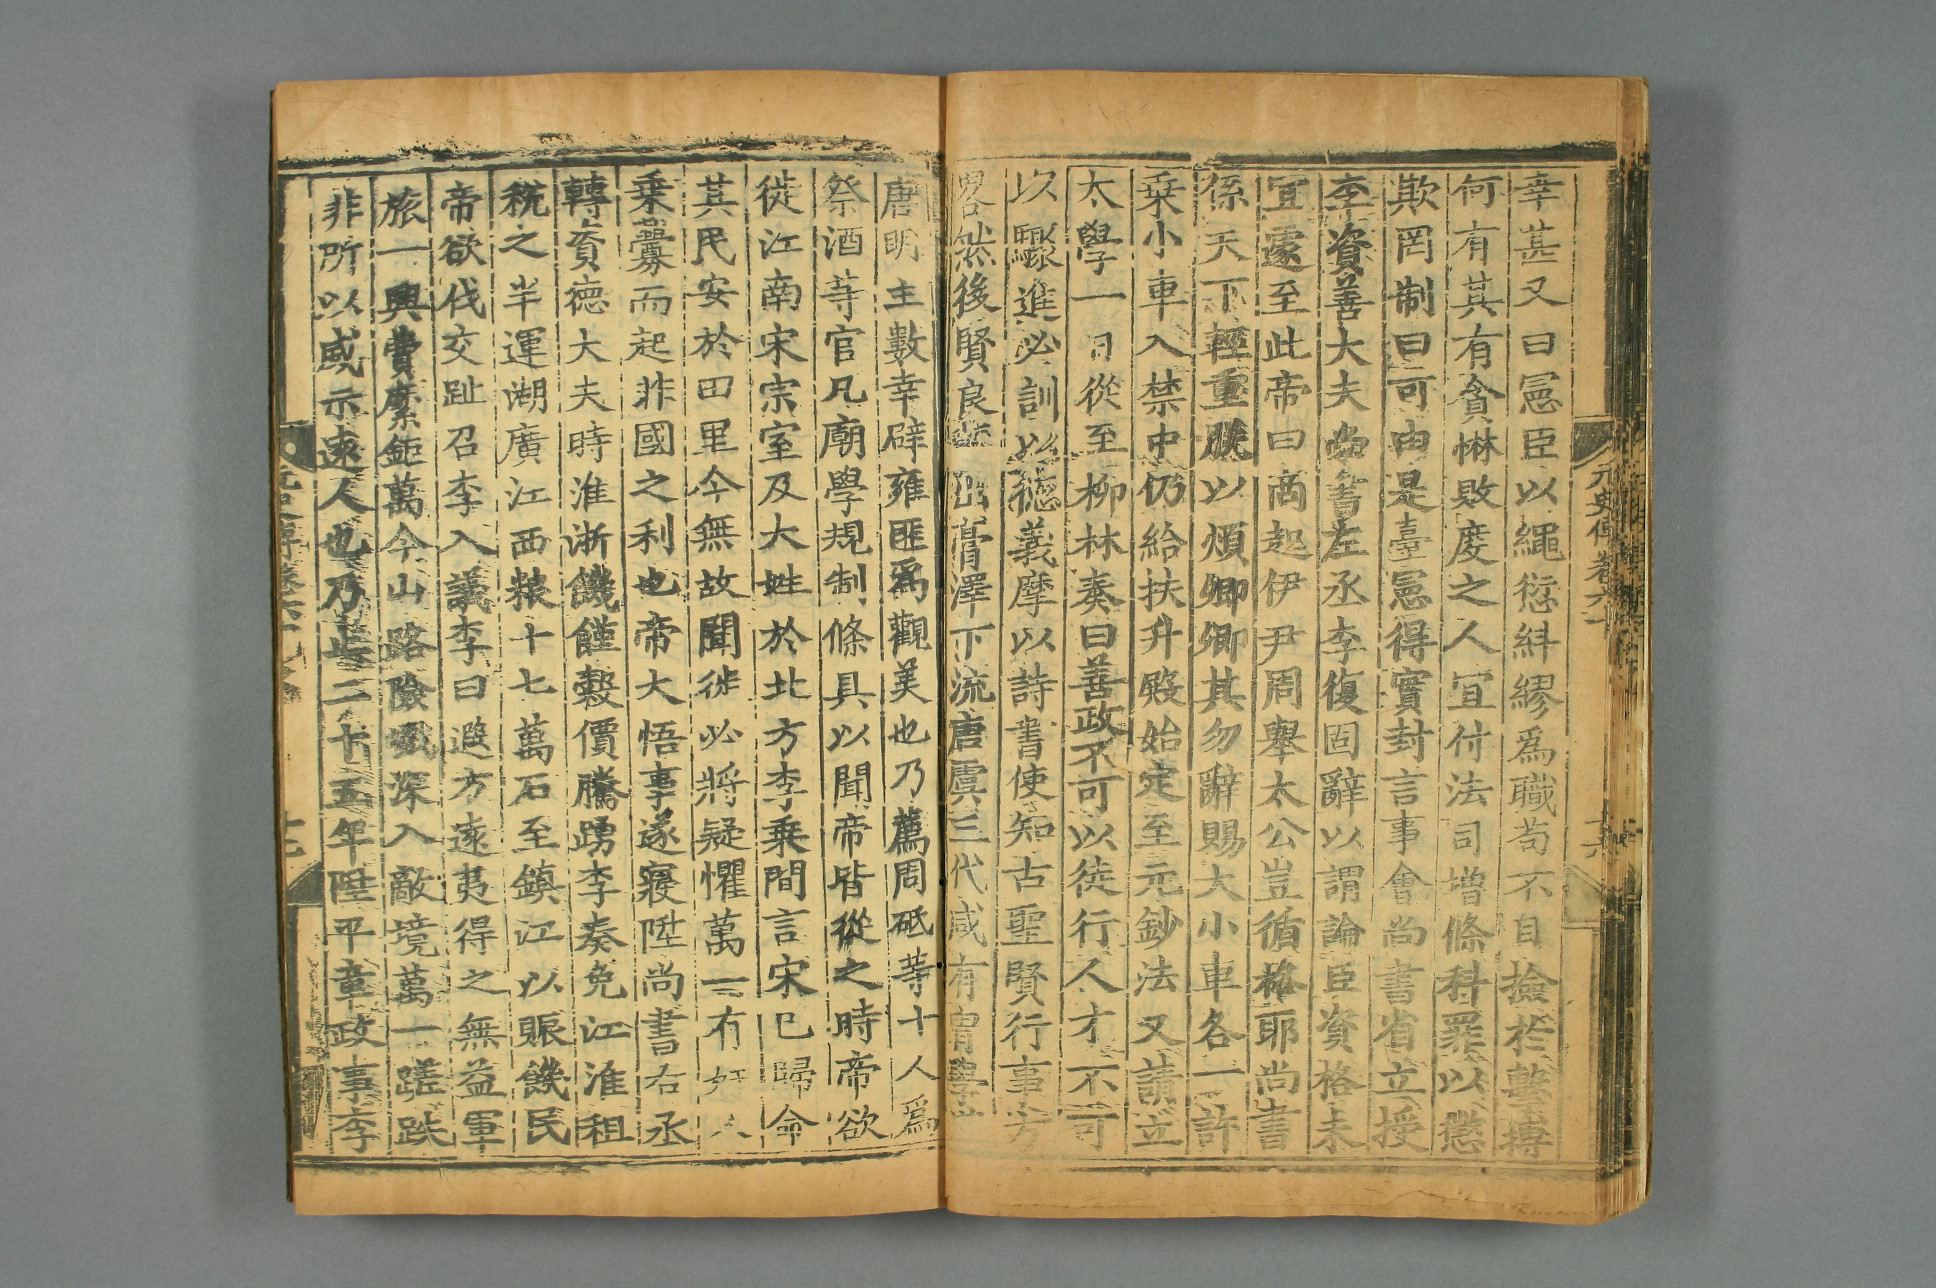 元史傳卷六十
十六
幸甚又曰憲臣以繩愆糾繆爲職苟不自撿於擊搏
何有其有貪惏敗度之人宜付法司增條科罪以懲
欺罔制曰可由是臺憲得實封言事會尚書省立授
李資善大夫尚書左丞李復固辭以謂論臣資格未
宜遽至此帝曰商起伊尹周舉太公豈循格耶尚書
係天下輕重朕以煩卿卿其勿辭賜大小車各一許
乗小車入禁中仍給扶升殿始定至元鈔法又請立
太學一日從至柳林奏曰善政不可以徒行人才不可
以驟進必訓以德義摩以詩書使知古聖賢行事方
畧然後賢良輩出膏澤下流唐虞三代咸有胄學
唐明主數幸辟雍匪爲觀美也乃薦周砥等十人爲
祭酒等官凡廟學規制條具以聞帝皆從之時帝欲
徙江南宋宗室及大姓於北方李乗間言宋已歸命
其民安於田里今無故聞徙必將疑懼萬一有奸人
乗釁而起非國之利也帝大悟事遂寢陞尚書右丞
轉資德大夫時淮浙饑饉穀價騰踴李奏免江淮租
稅之半運湖廣江西糧十七萬石至鎮江以賑饑民
帝欲伐交趾召李入議李曰遐方遠夷得之無益軍
旅一興費縻鉅萬今山路險巇深入敵境萬一蹉跌
非所以威示遠人也乃止二十五年陞平章政事李
十七